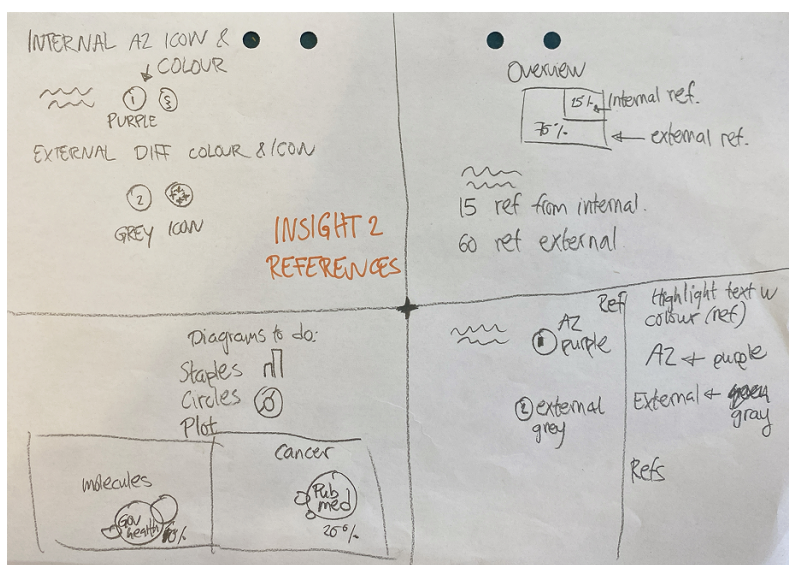 INTERNAL AZ ICON &
COLOUR
1
PURPLE
EXTERNAL DIFF COLOUR & ICON
2
GREY ICON
INSIGHT 2
REFERENCES
Overview
15%
Internal ref.
75%
external ref.
15 ref from internal.
60 ref external
Diagrams to do:
Staples
Circles
Plot
molecules
Gov
health
%
Cancer
Pub
med
20%
Ref
AZ
purple
2 external
grey
Highlight text w
colour (ref)
AZ ← purple
External ←
gray
Refs